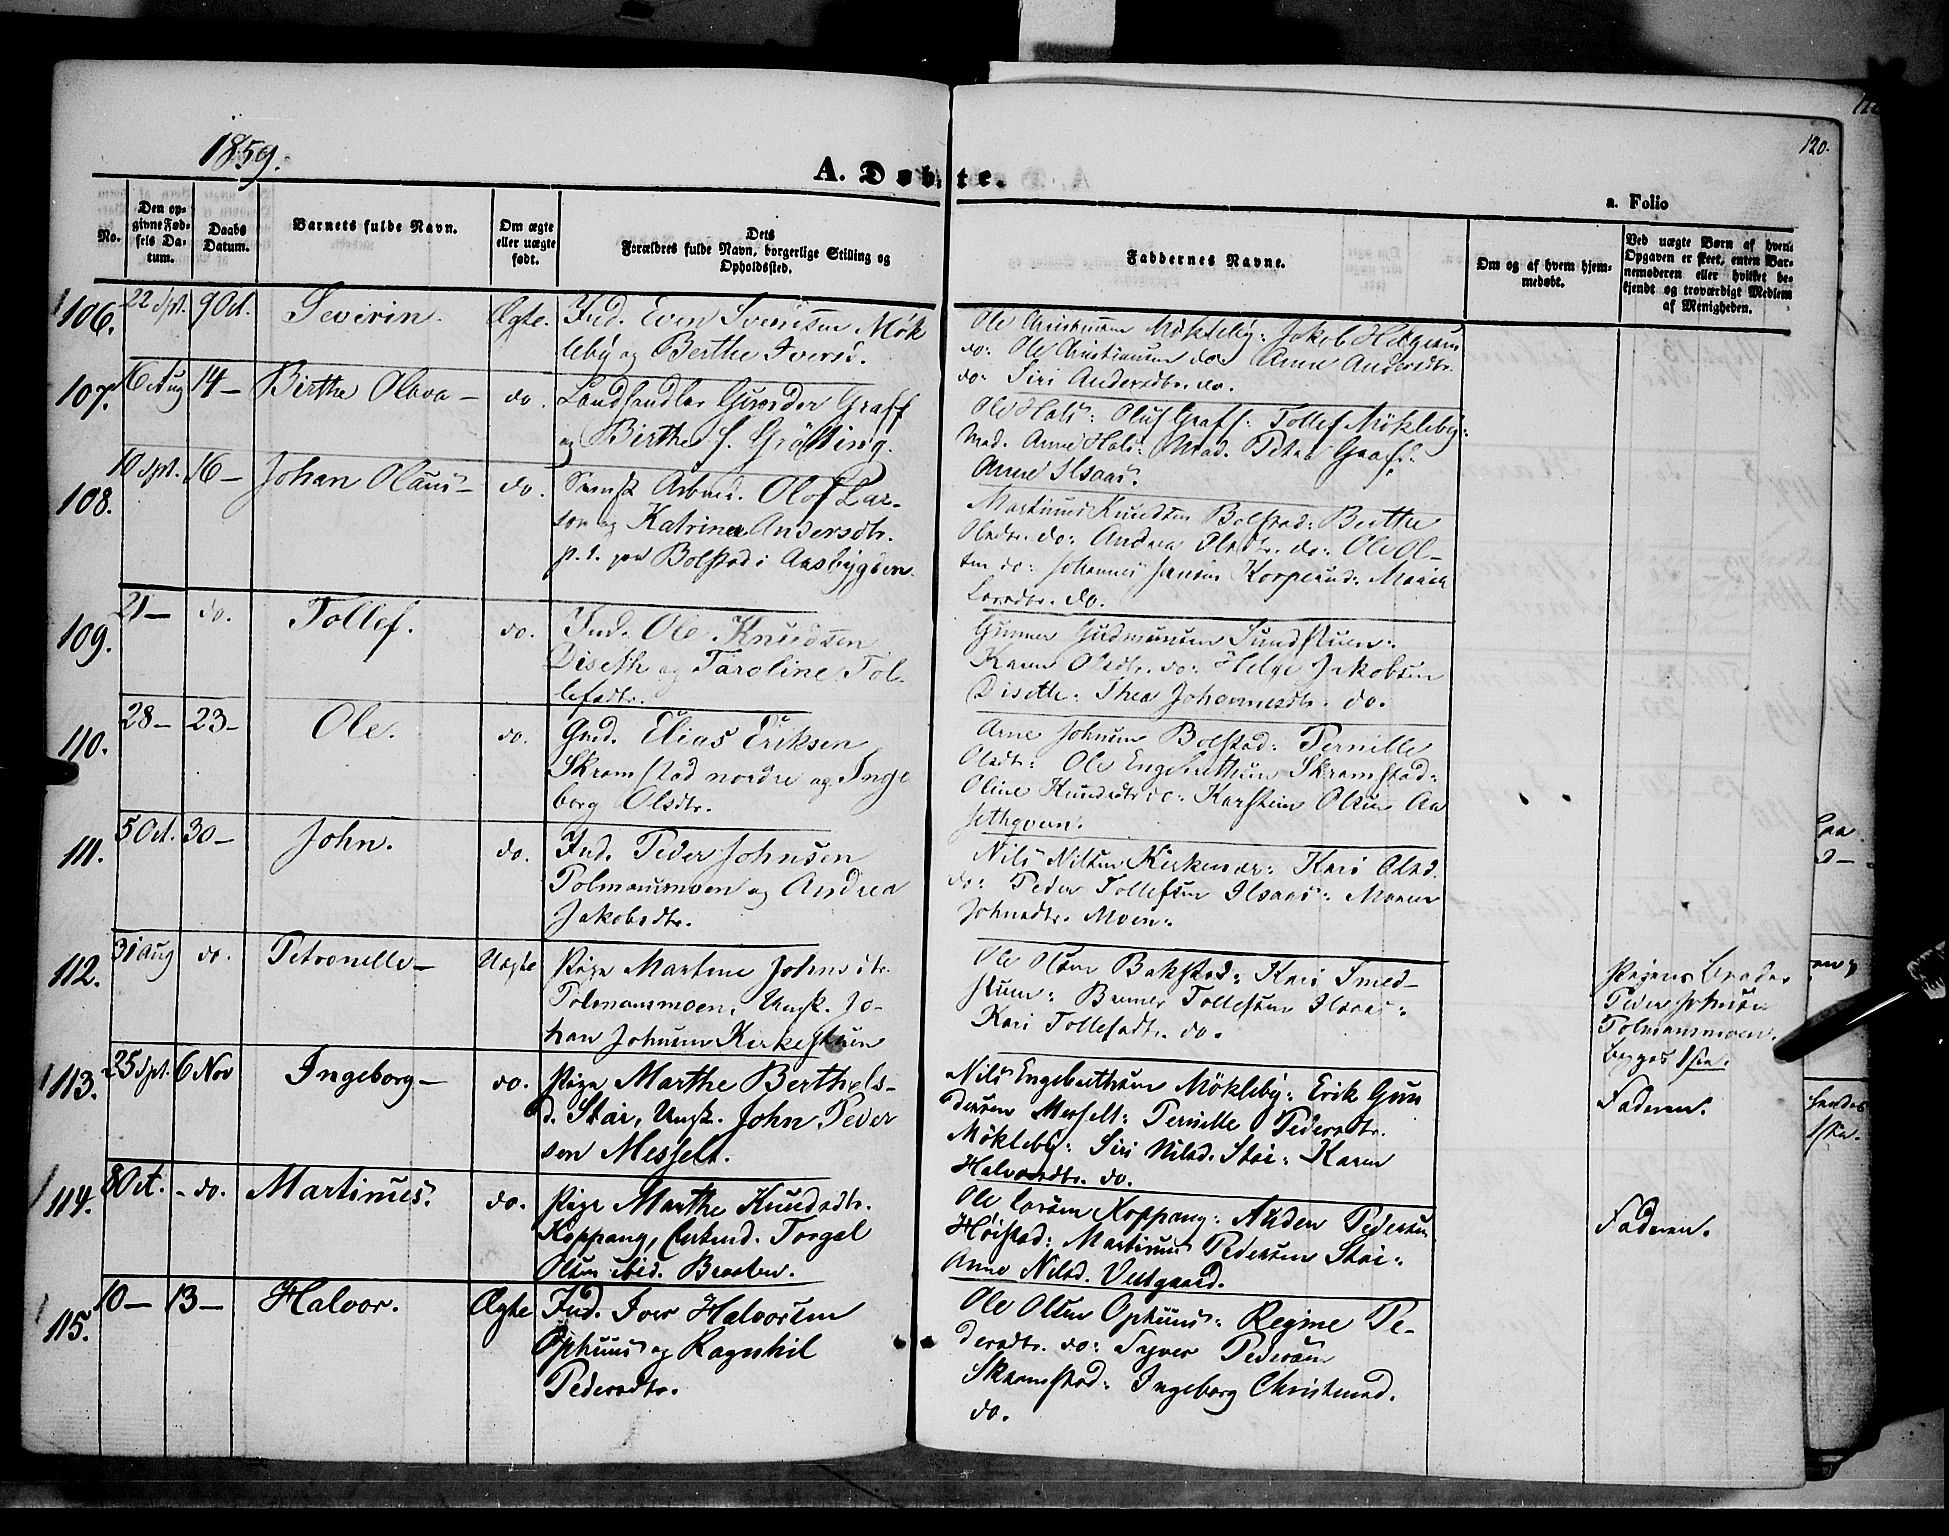 1859.
120.
A. Døbte.
a. Folio
No.
Den op-
givne Fød-
sels Da-
tum.
Daabs
Datum.
Barnets fulde Navn.
Om ægte
eller uægte
født.
Dets
Forældres fulde Navn, borgerlige Stilling og
Opholdssted.
Faddernes Navne.
Om og af hvem hjem-
medøbt.
Ved uægte Børn af hvem
Opgaven er skeet, enten Bar-
nemoderen eller hvilket be-
kjendt og troværdigt Medlem
af Menigheden.
106. 22 Spt. 9 Oct. Severin. Ægte. Ind. Even Svensen Møk
leby og Berthe Iversd.
Ole Christiansen Møkleby: Jakob Helgesen
do: Ole Christiansen do: Anne Andersdtr.
do: Siri Andersdtr. do.
107. 16 Aug 14 – Birthe Olava – do. Landhandler Gunder Graff
og Birthe f. Grøtting.
Ole Hals: Oluf Graff: Tollef Møkleby:
Mad. Anne Hals: Mad. Petra Graff:
Anne Ilsaas.
108. 10 Spt. 16 – Johan Olaus – do. Svensk Arbeid. Olof Lar-
son og Katrina Andersdtr.
p. t. paa Bolstad i Aasbygden.
Martinus Knudsen Bolstad: Berthe
Olsdtr. do: Andrea Olsdtr. do: Ole Ol-
sen do: Johannes Jensen Koppang: Maria
Larsdtr. do.
109. 21 – do. Tollef. do. Ind. Ole Knudsen
Diseth og Karoline Tol-
lefsdtr.
Gunner Gudmunsen Sundstuen:
Karen Olsdtr. do: Helge Jakobsen
Diseth: Thea Johannesdtr. do.
110. 28 – 23 – Ole. do. Gmd. Elias Eriksen
Skramstad nordre og Inge
borg Olsdtr.
Arne Johnsen Bolstad: Pernille
Olsdtr: Ole Engebrethsen Skramstad:
Oline Knudsdtr do: Karsten Olsen Aa
sethgven.
111. 5 Oct. 30 – John. do. Ind. Peder Johnsen
Tolmansmoen og Andrea
Jakobsdtr.
Nils Nilsen Kirkenær: Kari Olsd.
do: Peder Tollefsen Ilsaas: Maren
Johnsdtr. Moen:
112. 31 Aug do. Petronelle – Uægte Pige Martine Johnsdtr.
Tolmansmoen, Ungk. Jo-
han Johnsen Kirkestuen
Ole Olsen Bakstad: Kari Smed-
stuen: Berner Tollefsen Ilsaas:
Kari Tollefsdtr. do.
Pigens Broder
Peder Johnsen
Tolmansmoen.
begges 1ste.
113. 25 Spt. 6 Nov Ingeborg – do. Pige Marthe Berthels-
d. Stai, Ungk. John Peder
sen Messelt.
Nils Engebrethsen Møkleby: Erik Gun
dersen Messelt: Pernille Pedersdtr.
Møkleby: Siri Nilsd. Stai: Karen
Halvorsdtr. do.
Faderen.
114. 8 Oct. – do. Martinus. do. Pige Marthe Knudsdtr.
Koppang, Enkemd. Torgal
Olsen ibid. Braaten.
Ole Larsen Koppang: Anden Pedersen
Høistad: Martinus Pedersen Stai:
Anne Nilsd. Vestgaard.
Faderen.
115. 10 – 13 – Halvor. Ægte Ind. Iver Halvorsen
Ophuus og Ragnhil
Pedersdtr.
Ole Olsen Ophuus: Regine Pe-
dersdtr. do: Syver Pedersen
Skramstad: Ingeborg Christensd.
do.